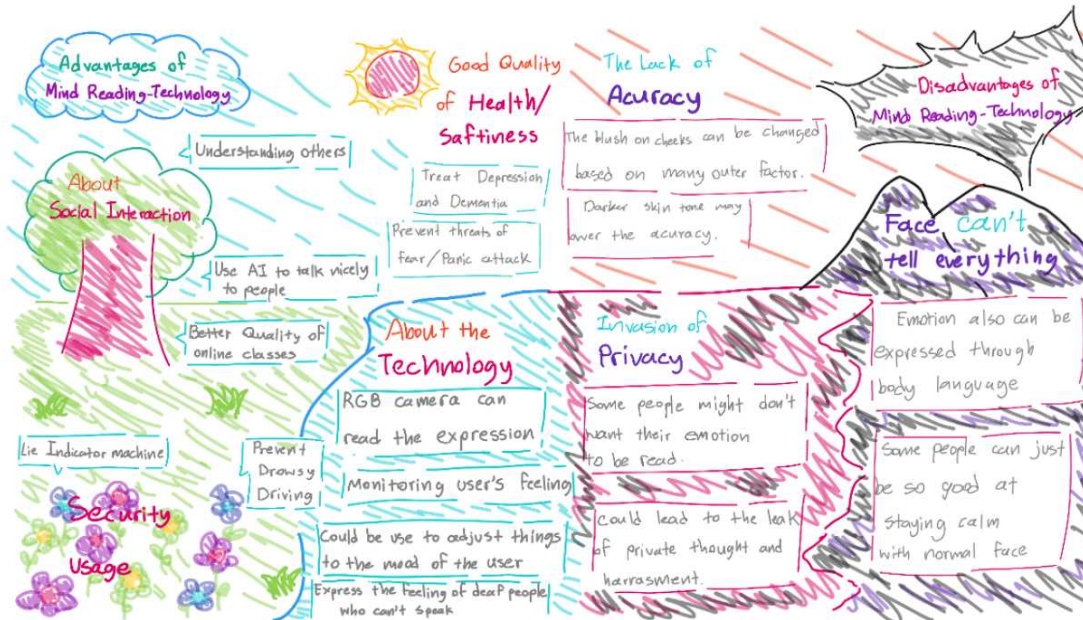 Advantages of
Mind Reading-Technology
About
Social Interaction
Understanding others
Use AI to talk nicely
to people
Better Quality of
online classes
Lie Indicator machine
Prevent
Drowsy
Driving
Security
Usage
Good Quality
of Health/
Saftiness
Treat Depression
and Dementia
Prevent threats of
fear/Panic attack
About the
Technology
RGB camera can
read the expression
Monitoring user's feeling
Could be use to adjust things
to the mood of the user
Express the feeling of deaf people
who can't speak
The Lack of
Acuracy
The blush on cheeks can be changed
based on many outer factor.
Darker skin tone may
lower the acuracy.
Invasion of
Privacy
Some people might don't
want their emotion
to be read.
Could lead to the leak
of private thought and
harrasment.
Disadvantages of
Mind Reading-Technology
Face can't
tell everything
Emotion also can be
expressed through
body language
Some people can just
be so good at
staying calm
with normal face